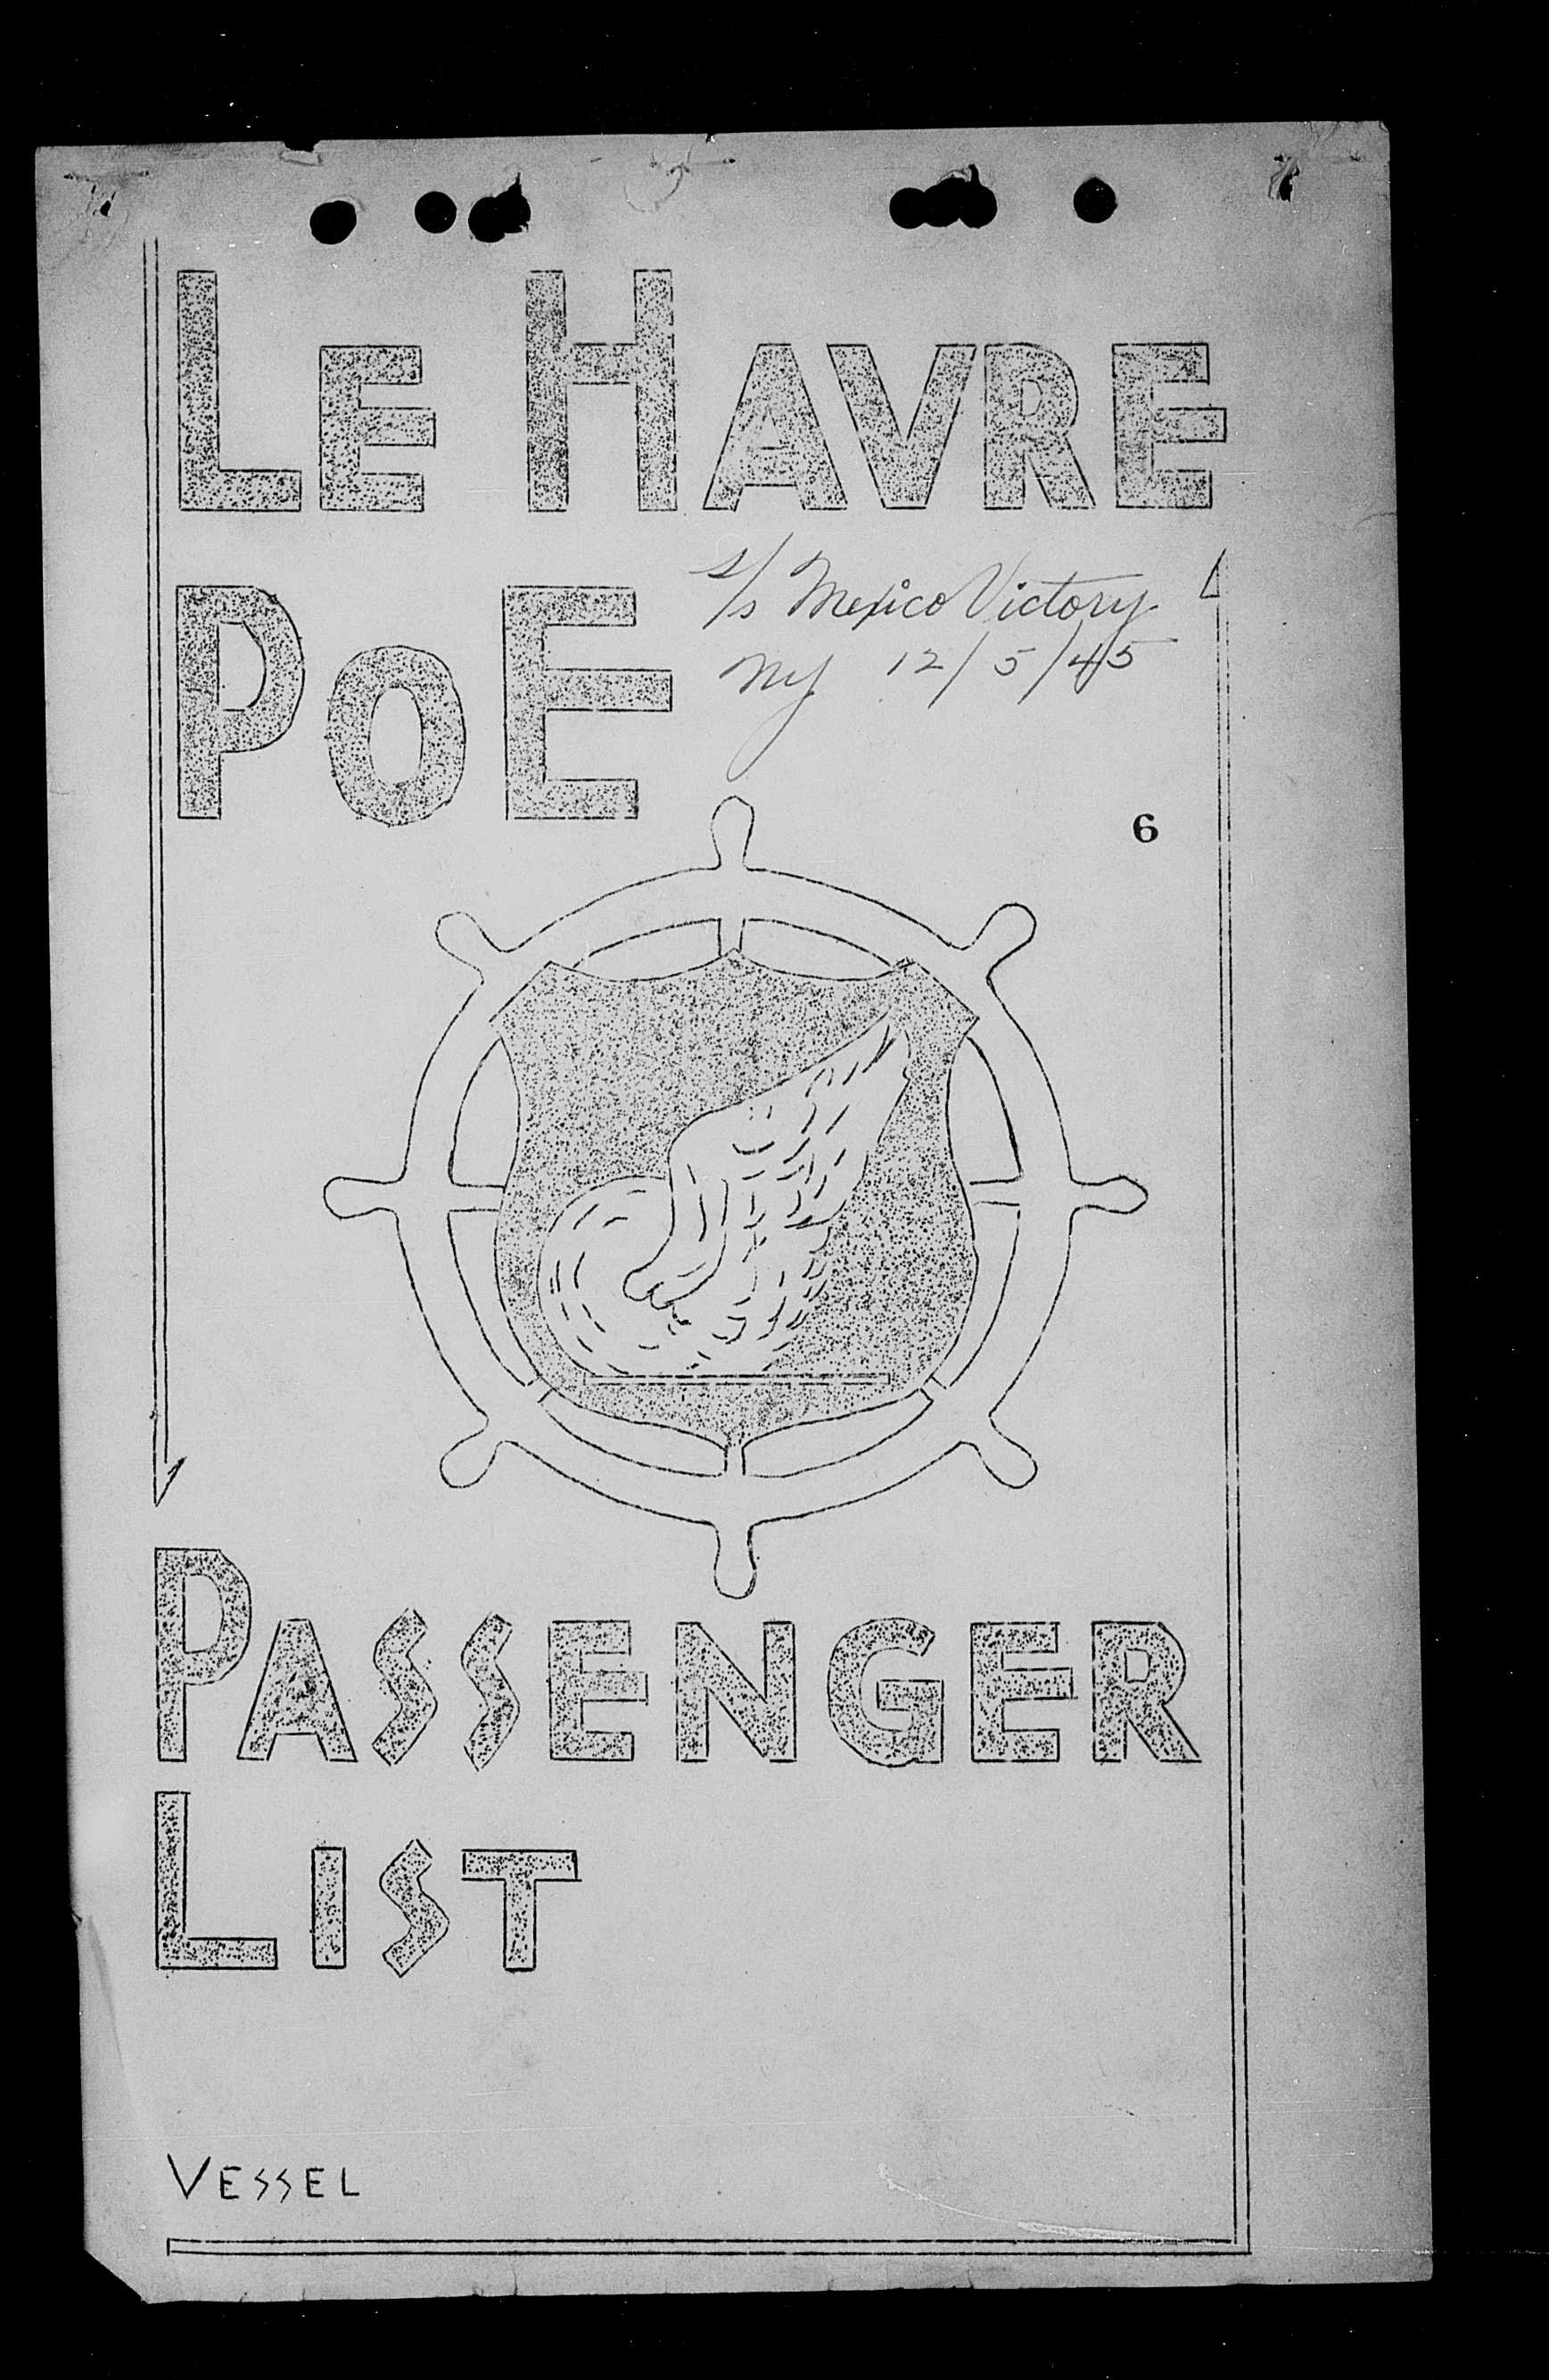 LE HAVRE
POE
S/S Mexico Victory
NY 12/5/45
6
PASSENGER
LIST
VESSEL